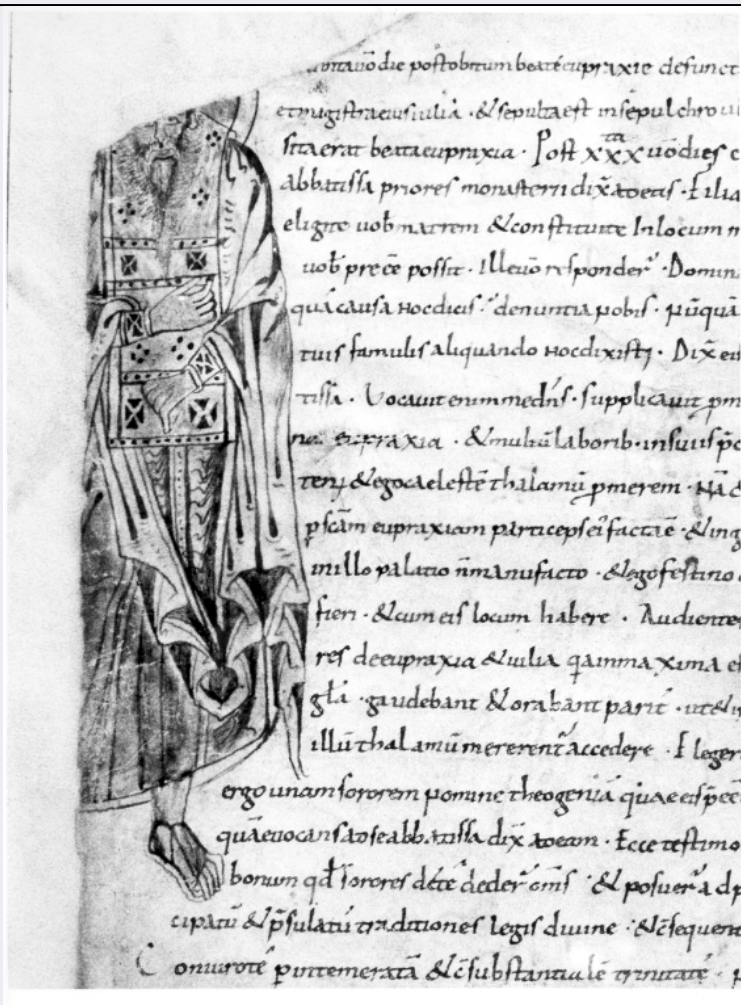 die post obitum beate eupraxie defunct
et magistra eius iulia · & sepulta est in sepulchro u
sita erat beata eupraxia · Post xxxta uo dies c
abbatissa priores monasterii dix̄ ad eas · Filia
eligite uob̄ matrem & constituite In locum m
uob̄ preēe possit · Ille uō responder̄ · Domin
qua causa hoc dicis · denuntia nobis · nūquā
tuis famulis aliquando hoc dixisti · Dix̄ ei
tissa · Vocauit enim me dn̄s · supplicauit p m
eupraxia · & multū laborib· in suis
terii & ego caelestē thalamū p merem · Nā &
p scām eupraxiam particeps ei facta ē · & ing
in illo palatio n̄ manufacto · & ego festino
fieri · & cum eis locum habere · Audiente
res de eupraxia & iulia q̄a in maxima e
gl̄a · gaudebant & orabant parit̄ · ut & i
illū thalamū mererent̄ accedere · Eleger
ergo unam sororem nomine theogeniā quae eis p̄eēt
quā euocans ad se abbatissa dix̄ ad eam · Ecce testimo
bonum qd̄ sorores de te deder̄ om̄s · & posuer̄
cipatū & p̄sulatū traditiones legis diuine · & c̄sequen
Coniuro te p intemeratā & c̄substantialē trinitatē ·